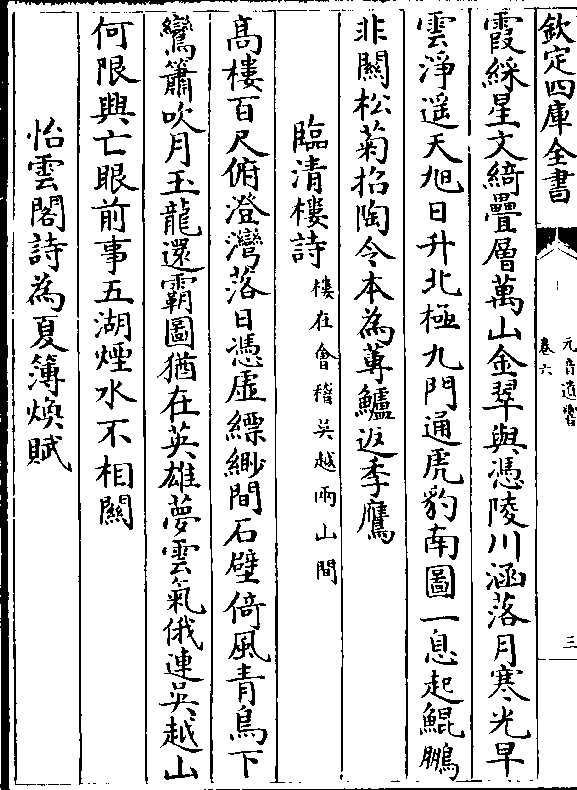 欽定四庫全書
元音遺響
卷六
三
霞綵星文綺疊層萬山金翠與憑陵川涵落月寒光早
雲淨遥天旭日升北極九門通虎豹南圖一息起鯤鵬
非關松菊招陶令本為蓴鱸返季鷹
臨清樓詩樓在會稽吳越兩山間
髙樓百尺俯澄灣落日憑虚縹緲間石壁倚風青鳥下
鸞簫吹月玉龍還霸圖猶在英雄夢雲氣俄連吳越山
何限興亡眼前事五湖煙水不相關
怡雲閣詩為夏簿煥賦